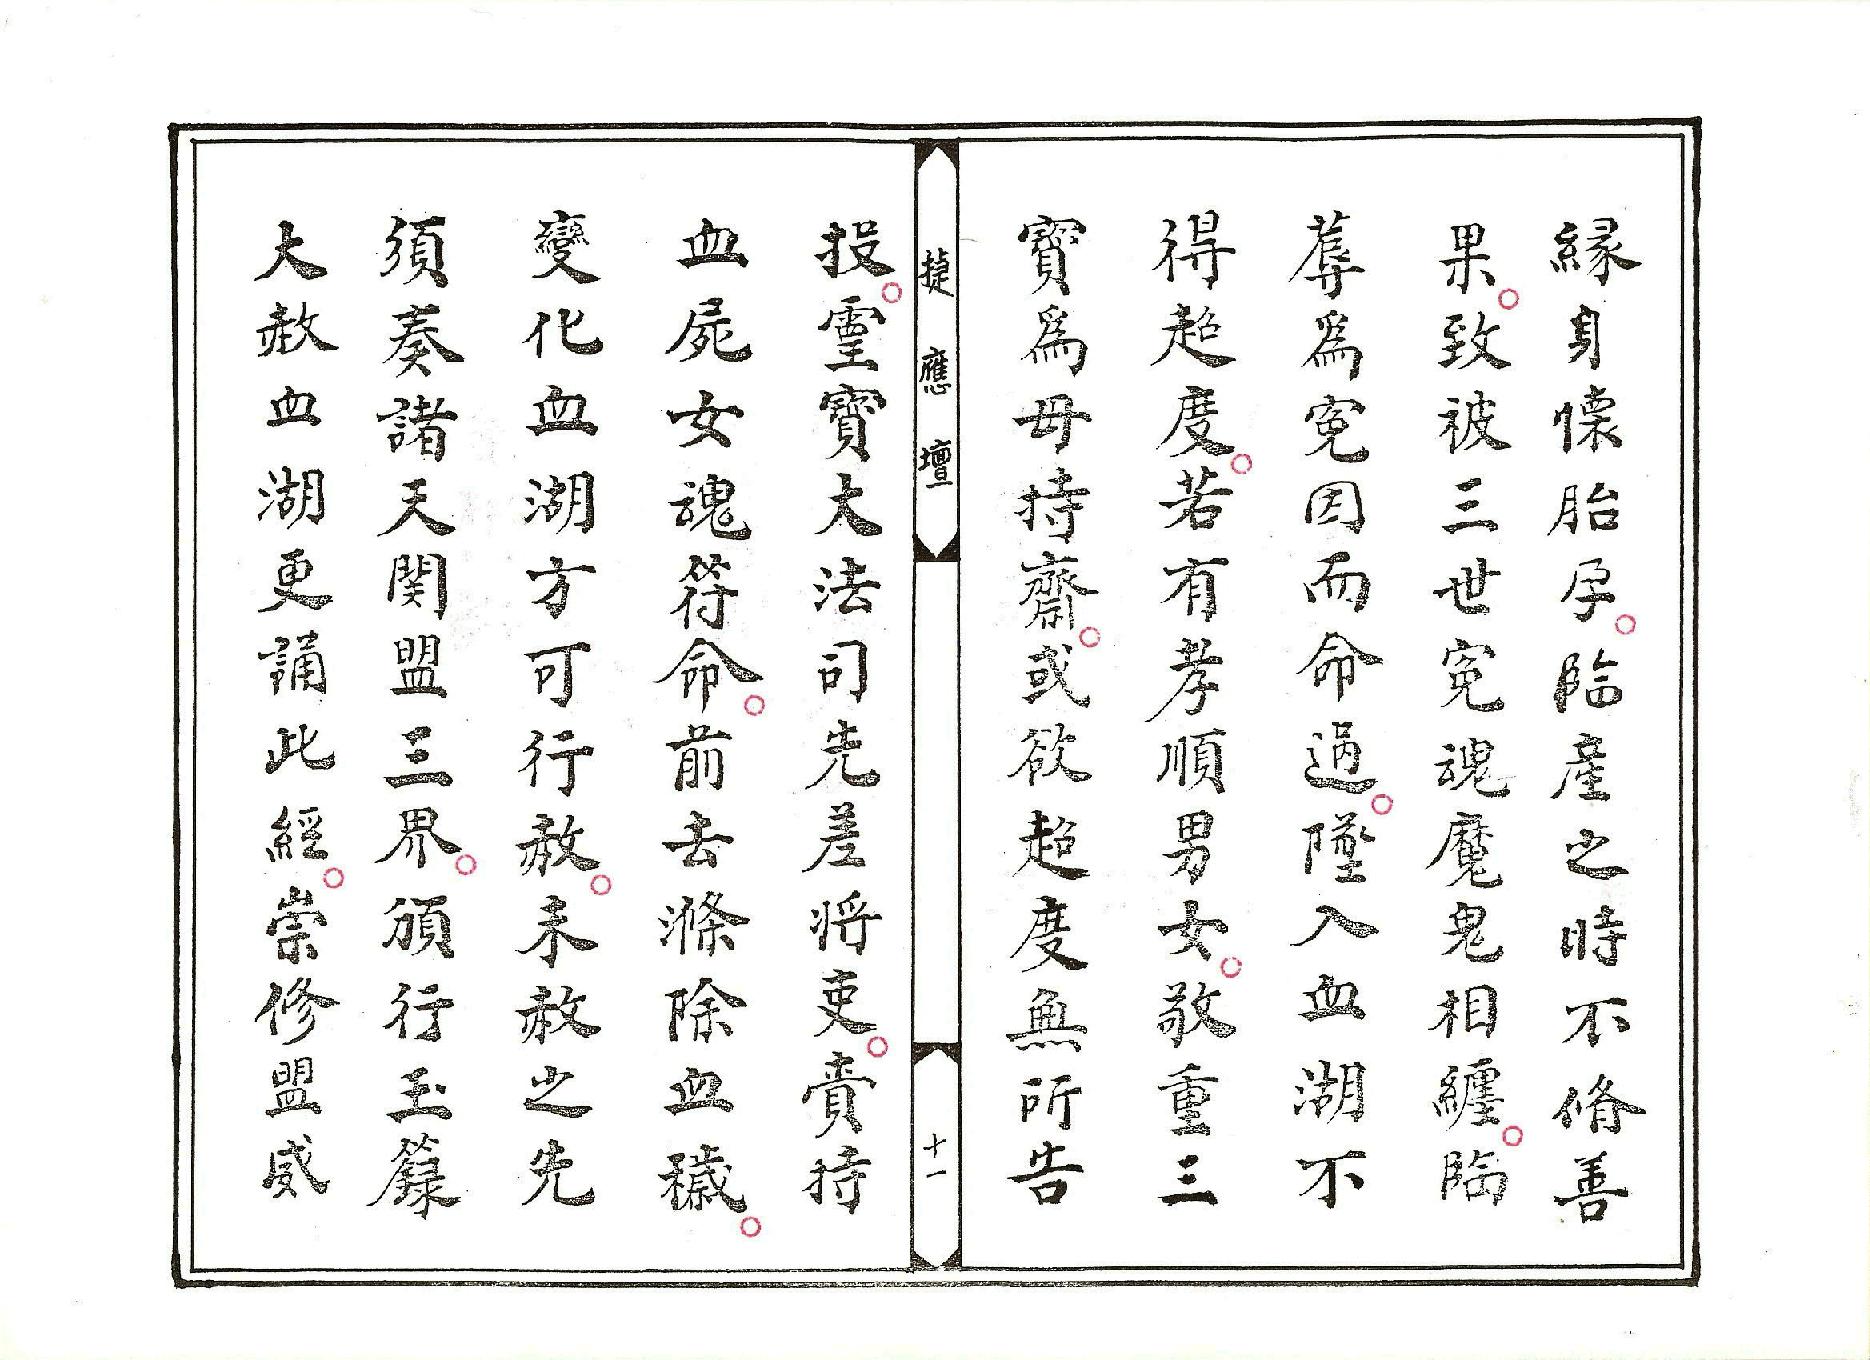 緣身懷胎孕。臨產之時不脩善
果。致被三世冤魂魔鬼相纏。臨
蓐爲冤因而命過。墜入血湖不
得超度。若有孝順男女。敬重三
寶爲母持齋。或欲超度無所告
捷應壇
十一
投。靈寶大法司先差將吏。賫持
血屍女魂符命。前去滌除血穢。
變化血湖方可行赦。未赦之先
須奏諸天関盟三界。頒行玉籙
大赦血湖更誦此經。崇修盟威